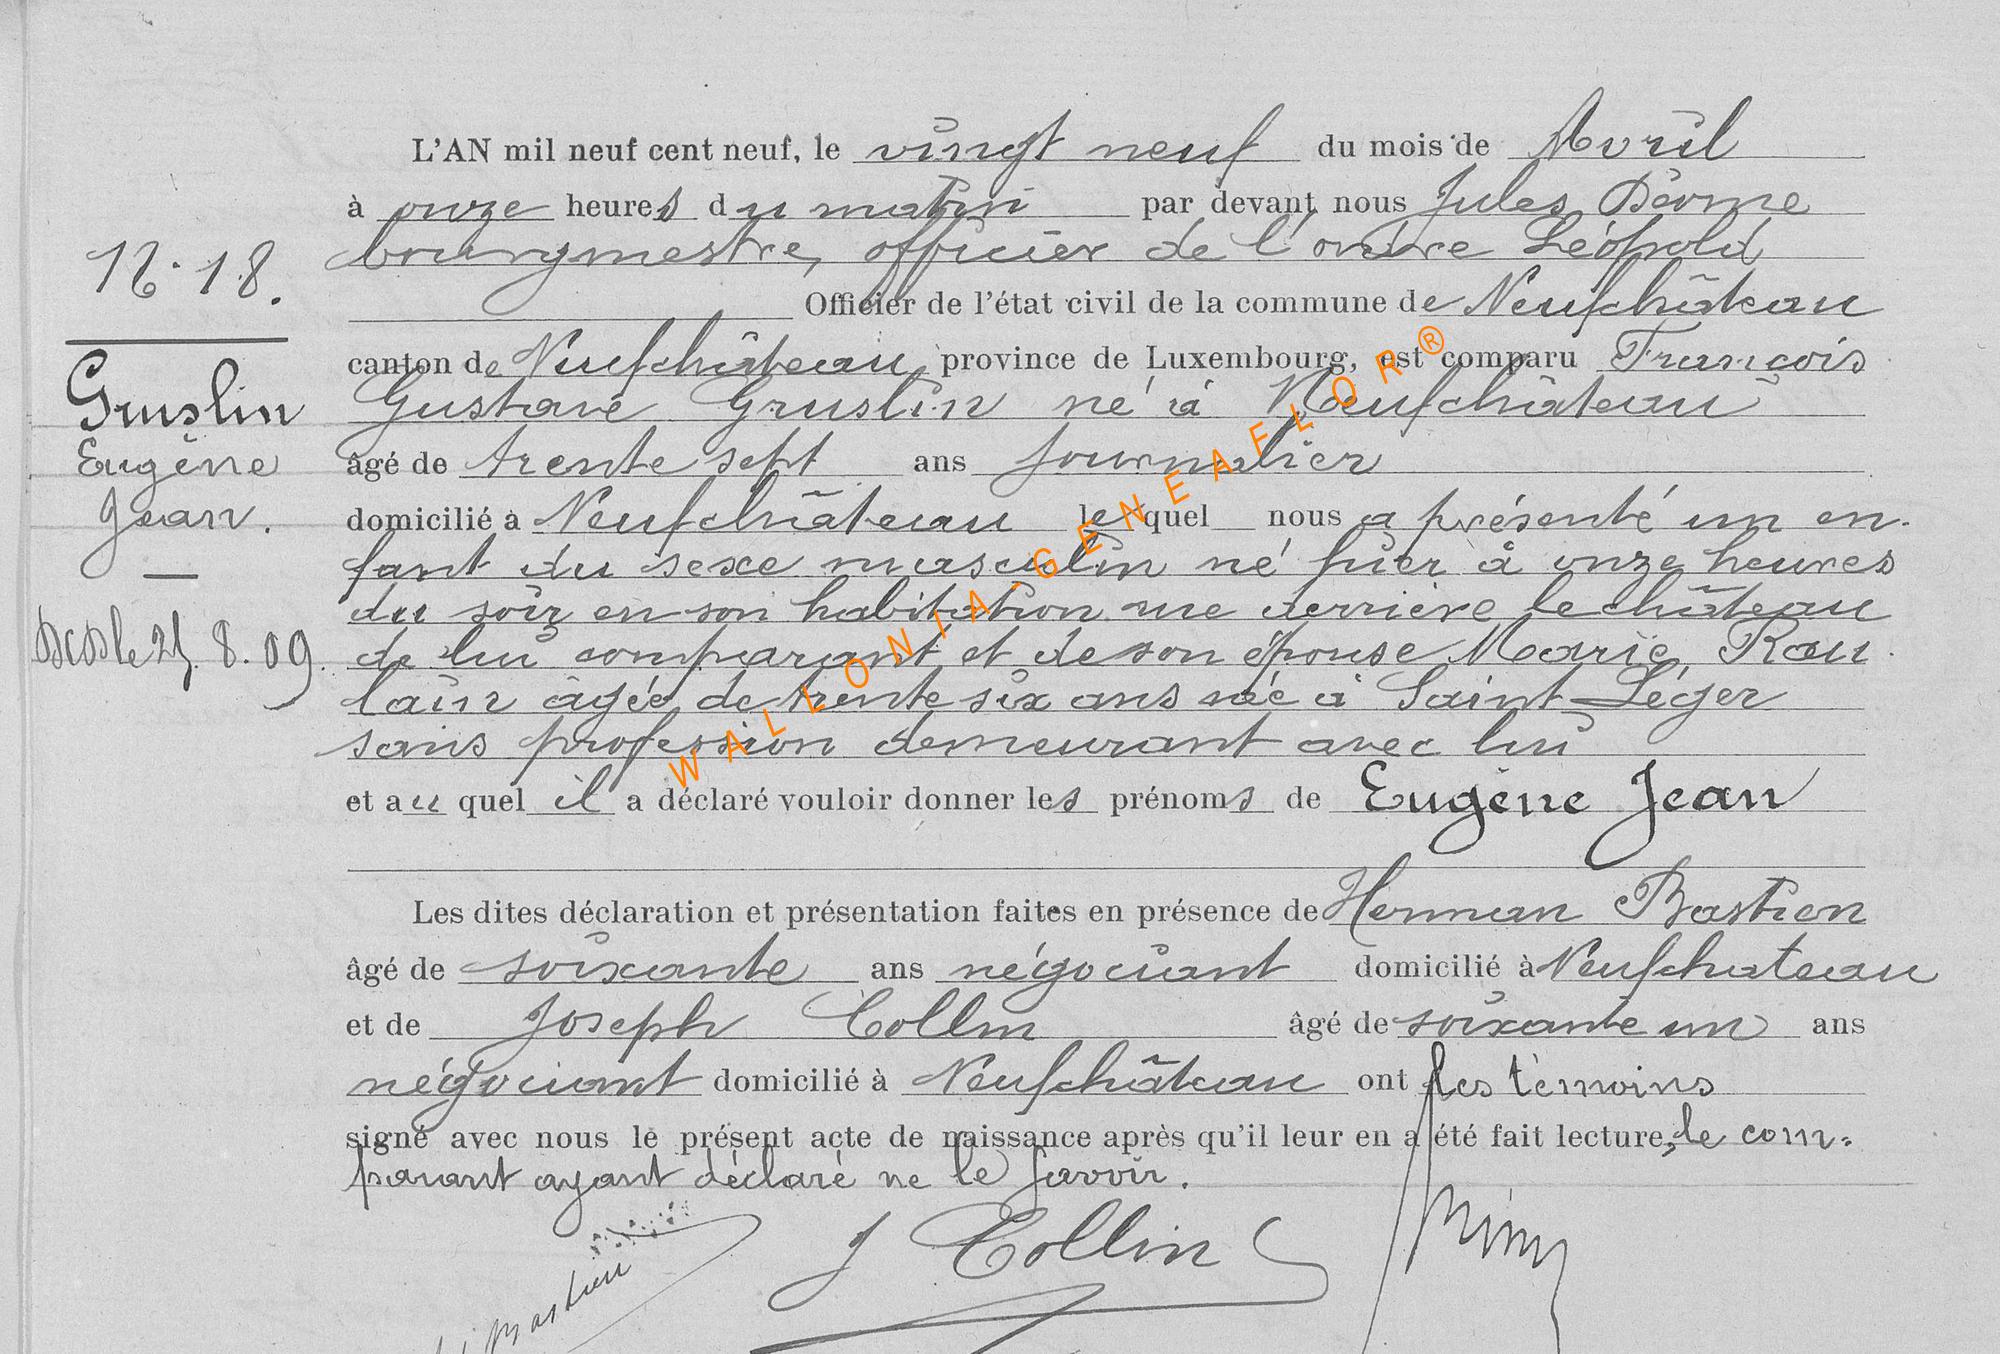 L'AN mil neuf cent neuf, le vingt neuf du mois de Avril
à onze heures du matin par devant nous Jules Dérome
bourgmestre, officier de l'ordre Léopold
N: 18.
Officier de l'état civil de la commune de Neufchâteau
canton de Neufchâteau province de Luxembourg, est comparu François
Gruslin
Gustave Gruslin né à Neufchâteau
Eugène
âgé de trente sept ans journalier
Jean.
domicilié à Neufchâteau lequel nous a présenté un en-
fant du sexe masculin né hier à onze heures
du soir en son habitation rue derrière le château
Dcd le 25.8.09.
de lui comparant et de son épouse Marie Rou
laux âgée de trente six ans née à Saint-Léger
sans profession demeurant avec lui
et auquel il a déclaré vouloir donner les prénoms de Eugène Jean
Les dites déclaration et présentation faites en présence de Herman Bastien
âgé de soixante ans négociant domicilié à Neufchateau
et de Joseph Collin âgé de soixante un ans
négociant domicilié à Neufchâteau ont les témoins
signé avec nous le présent acte de naissance après qu'il leur en a été fait lecture, le com-
parant ayant déclaré ne le savoir.
J Collin
Bastien
WALLONIA-GENEAFLOR®